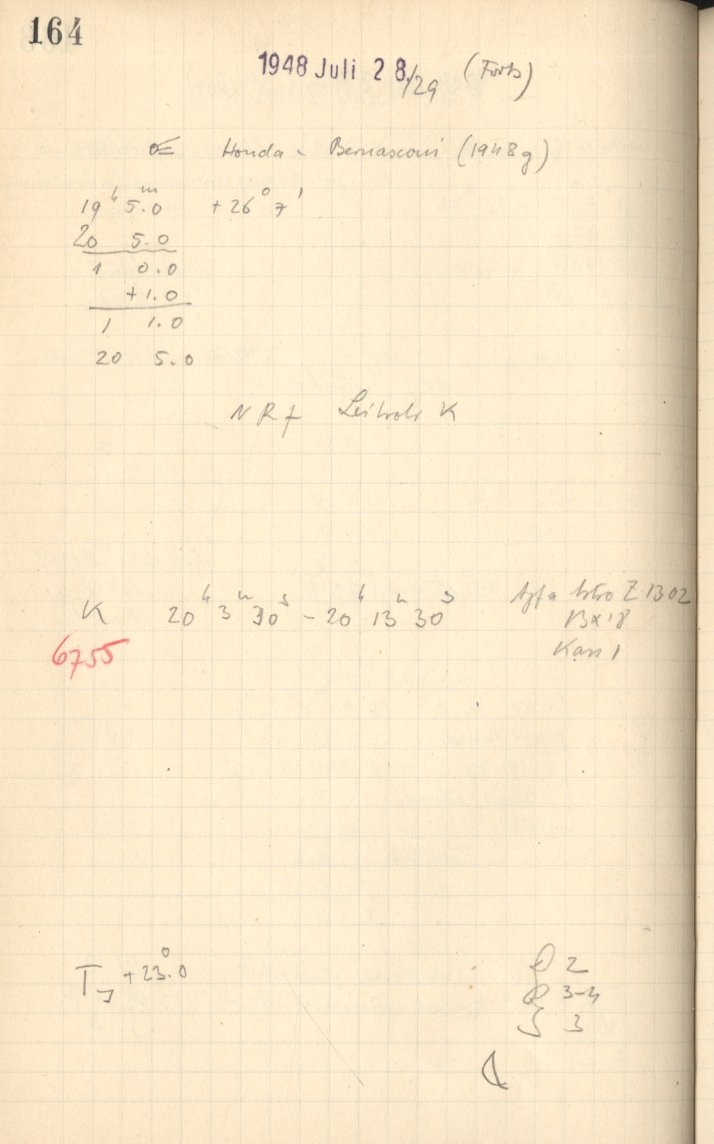 164
1948 Juli 28./29 (Forts)
☄ Honda - Bernasconi (1948g)
19ʰ 5.0ᵐ +26° 7'
20 5.0
1 0.0
+1.0
1 1.0
20 5.0
NR 7 K
K 20ʰ 3ᵐ 30ˢ - 20ʰ 13ᵐ 30ˢ Agfa Astro Z 1302
6755 13x18
Kass 1
T +23.0°
2
R 3-4
S 3